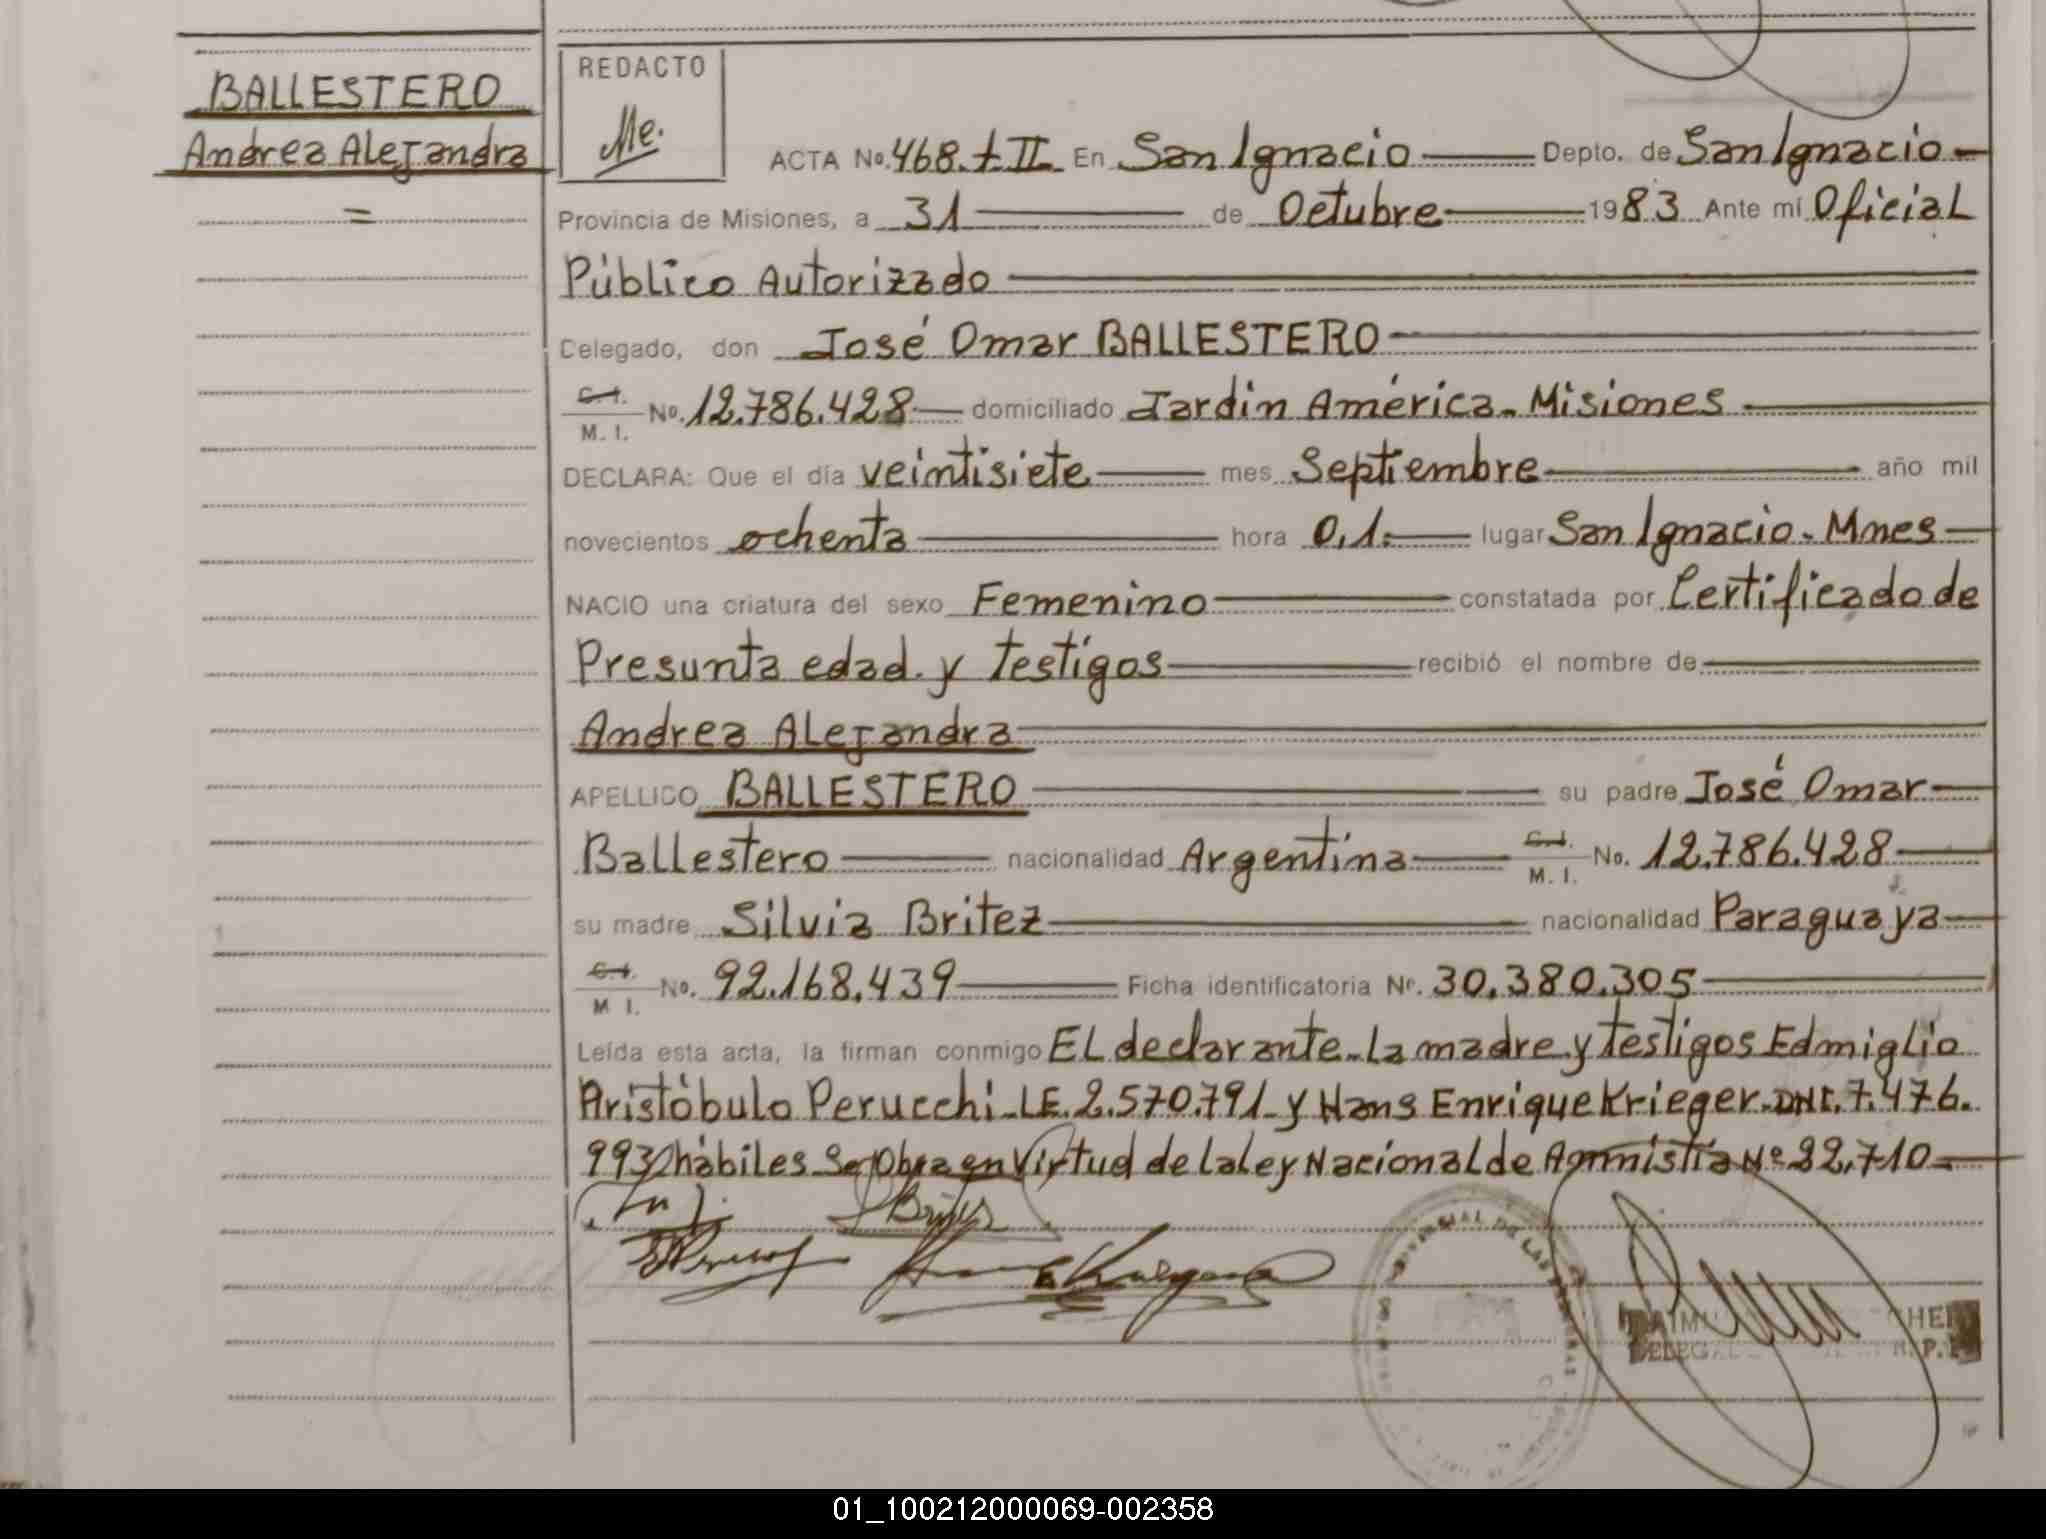 BALLESTERO
Andrea Alejandra
=
REDACTO
Me.
ACTA No. 468. t II En San Ignacio Depto. de San Ignacio
Provincia de Misiones, a 31 de Octubre 1983 Ante mi Oficial
Público Autorizado
Celegado, don José Omar BALLESTERO
C.I. M. I. No. 12.786.428 domiciliado Jardín América. Misiones
DECLARA: Que el día veintisiete mes Septiembre año mil
novecientos ochenta hora 0,1. lugar San Ignacio. Mnes
NACIO una criatura del sexo Femenino constatada por Certificado de
Presunta edad. y testigos recibió el nombre de
Andrea Alejandra
APELLICO BALLESTERO su padre José Omar
Ballestero nacionalidad Argentina C.I. M. I. No. 12.786.428
su madre Silvia Britez nacionalidad Paraguaya
C.I. M I. No. 92.168.439 Ficha identificatoria Nº. 30.380.305
Leída esta acta, la firman conmigo EL declarante. La madre y testigos Edmiglio
Aristóbulo Perucchi. LE. 2.570.791. y Hans Enrique Krieger. DNI. 7.476.
993 hábiles Se Obra en Virtud de la Ley Nacional de Agmistia Nº 22.710
DELEGAD
01_100212000069-002358